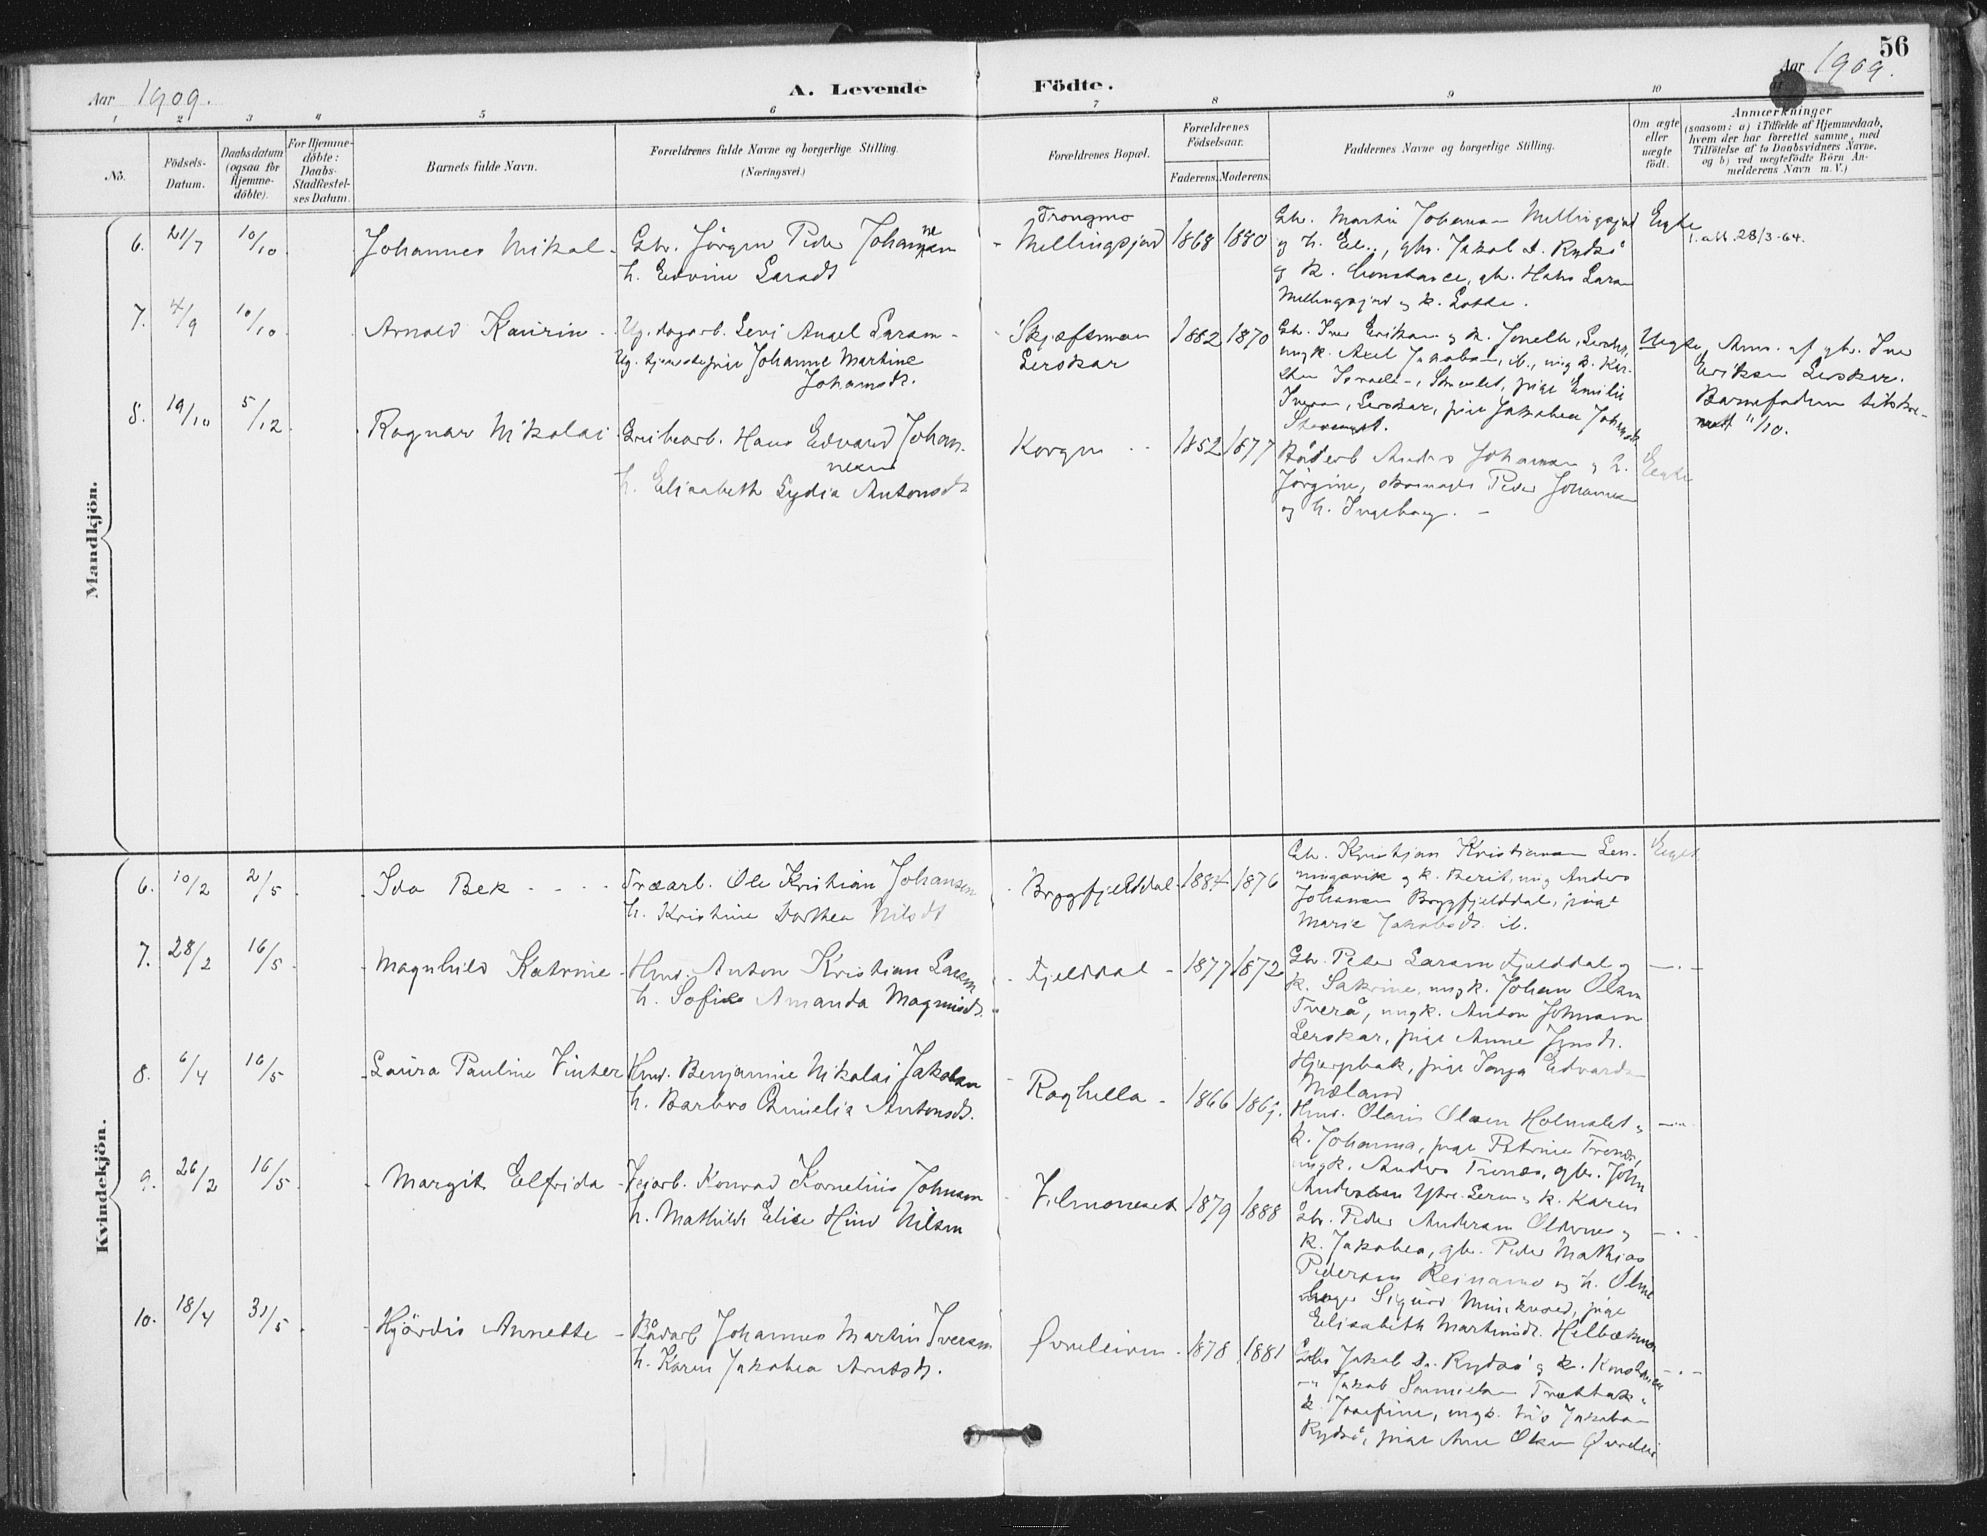 56
Aar 1909.
A. Levende Födte.
Aar 1909.
1 2 3 4 5 6 7 8 9 10
No.
Födsels-Datum.
Daabsdatum (ogsaa for Hjemme-döbte).
For Hjemme-döbte: Daabs-Stadfæstel-ses Datum.
Barnets fulde Navn.
Forældrenes fulde Navne og borgerlige Stilling. (Næringsvei.)
Forældrenes Bopæl.
Forældrenes Födselsaar.
Faderens. Moderens.
Faddernes Navne og borgerlige Stilling.
Om ægte eller uægte födt.
Anmærkninger
(saasom: a) i Tilfælde af Hjemmedaab, hvem der har forrettet samme, med Tilföielse af to Daabsvidners Navne. og b) ved uægtefödte Börn An-melderens Navn m. V.)
Mandkjön.
6. 21/7 10/10 Johannes Mikal
Gbr. Jörgen Peder Johannesen
h. Edvine Larsdt
Trongmo
Mellingsjord 1868 1880
Gbr. Martin Johansen Mellingsjord
og h. El., gbr. Jakob D. Rydså
og k. Constance, gbr. Hans Larsen
Mellingsjord og k. Lotte.
Egte
1. att. 28/3-64.
7. 4/9 10/10 Arnold Kaurin
Ug. dagarb. Levi Angel Larsen
Ug. tjenestepige Johanne Martine
Johansdt.
Lerskar 1882 1870
Gbr. Iver Eriksen og k. Jonette, Lerskar,
ungk. Axel Jakobsen, ib., ung k. Kar-
Iversen, Lerskar, pige Jakobea Johansdt
Uegte
Anm. af gbr. Iver
Eriksen Lerskar.
Barnefaderen tilskre-
vet 11/10.
8. 19/10 5/12 Ragnar Nikolai
Grubearb. Hans Edvard Johan-
nesen
h. Elisabeth Lydia Antonsdt
Korgen 1852 1877
Bådarb Anders Johansen og h.
Jörgine, skomager Peder Johansen
og h. Ingeborg.
Egte
Kvindekjön.
6. 10/2 2/5 Ida Bek
Træarb. Ole Kristian Johansen
h. Kristine Dorthea Nilsdt
Bryggfjelddal 1884 1876
Gbr. Kristian Kristiansen Len-
ningsvik og k. Berit, ung Anders
Johansen Bryggfjelddal, pige
Marie Jakobsdt. ib.
Egte
7. 28/2 16/5 Magnhild Katrine
Hmd. Anton Kristian Larsen
h. Sofie Amanda Magnusdt.
Fjelddal 1877 1872
Gbr. Peter Larsen Fjelddal og
k. Sakrine, ungk. Johan Olsen
Tverå, ungk. Anton Johnsen
Lerskar, pige Anne Jensdt.
Hjerpbak, pige Inga Edvards-
Mæland
8. 6/4 16/5 Laura Pauline Vinter
Hmd. Benjamine Nikolai Jakobsen
h. Barbro Cornelia Antonsdt.
Raghella 1866 1869.
Hmd. Olaus Olsen Holmslet og
k. Johanna, pige Petrine Trones,
ungk. Anders Trones, gbr. John
Andersen Ytre-Leren og k. Karen
9. 26/2 16/5 Margit Elfrida
Veiarb. Konrad Kornelius Johnsen
h. Mathilde Elise Hind Nilsen
Vilmoneset 1879 1888
Gbr. Peder Andersen Oldernes og
k. Jakobea, gbr. Peder Mathias
Pedersen Reinamo og h. Oline
Sigurd Munkvold, pige
Elisabeth Martinsdt. Helbækmo
10. 18/4 31/5 Hjördis Annette
Bådarb Johannes Martin Iversen
h. Karen Jakobea Arntsdt.
Övreleiren 1878 1881
Gbr Jakob D. Rydså og k. Konstance
Jakob Samuelsen Trættbak og
k. Josefine, ungk. Nils Jakobsen
Rydså, pige Ane Olsen Övreleir